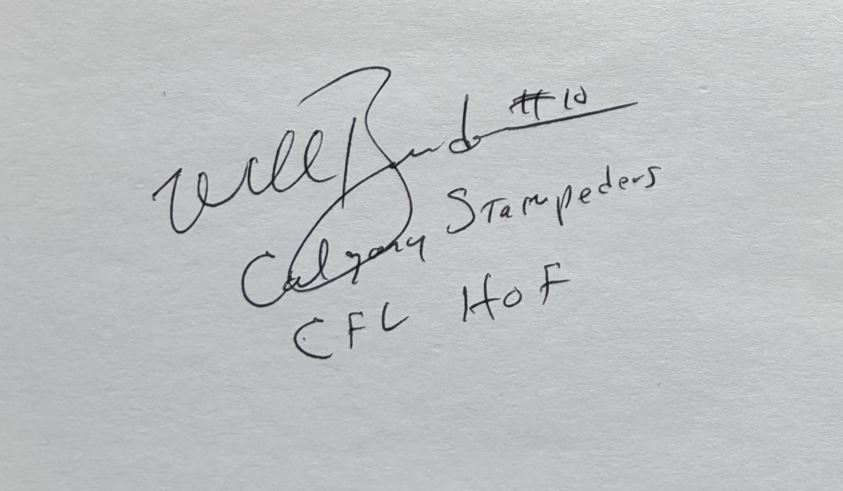 Will Burden #10
Calgary Stampeders
CFL HOF